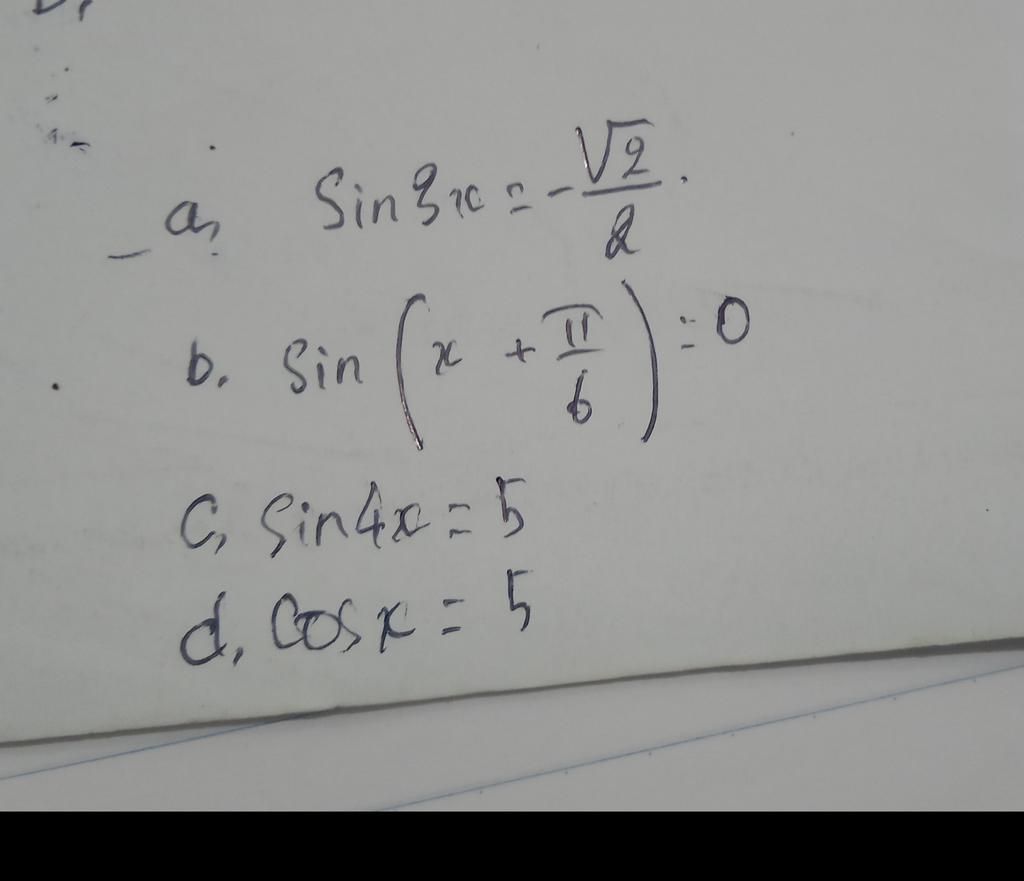 a, Sin3x = -√2/2.
b. Sin(x + π/6) = 0
C, Sin4x = 5
d, Cosx = 5